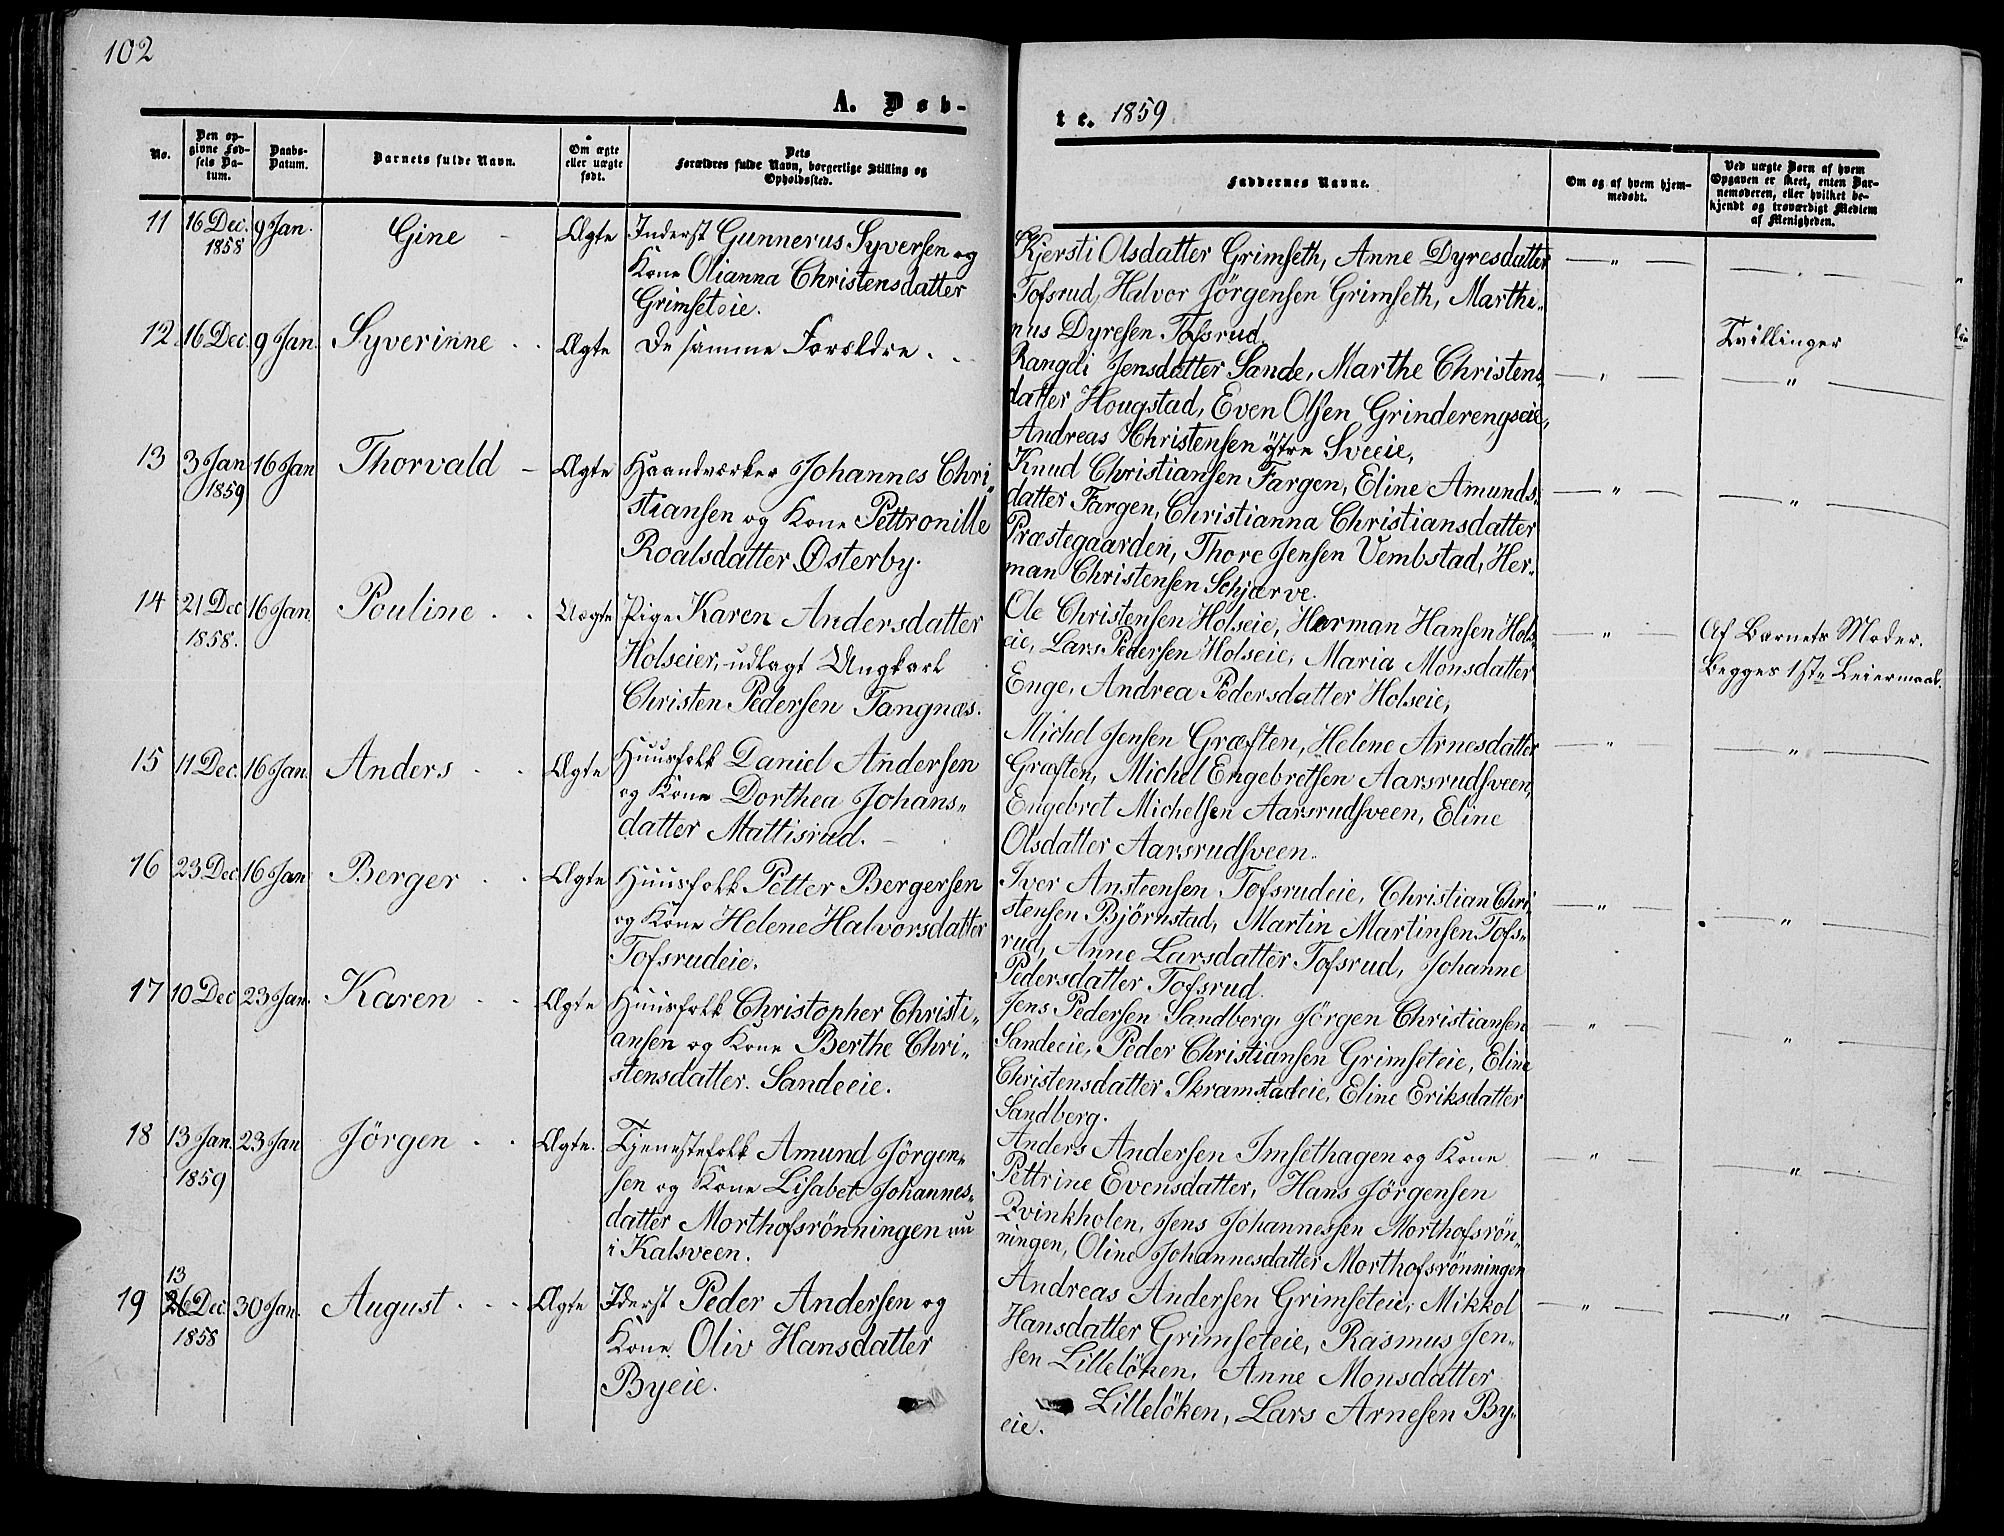 102
A. Døb-
te. 1859.
No.
Den op-
givne Fød-
sels Da-
tum.
Daabs-
Datum.
Barnets fulde Navn.
Om ægte
eller uægte
født.
Dets
Forældres fulde Navn, borgerlige Stilling og
Opholdssted.
Faddernes Navne.
Om og af hvem hjem-
medøbt.
Ved uægte Børn af hvem
Opgaven er skeet, enten Bar-
nemoderen, eller hvilket be-
kjendt og troværdigt Medlem
af Menigheden.
11 16 Dec. 9 Jan. Gine - Ægte Inderst Gunnerus Syversen og
1858
Kone Olianna Christensdatter
Grimseteie.
Kjersti Olsdatter Grimseth, Anne Dyresdatter — " —
Tofsrud, Halvor Jörgensen Grimseth, Marthi-
nus Dyresen Tofsrud.
12 16 Dec. 9 Jan. Syverinne . . Ægte De samme Forældre . .
Tvillinger
Rangdi Jensdatter Sande, Marthe Christens- — " — — " —
datter Hougstad, Even Olsen Grinderengseie,
Andreas Christensen östre Sveeie,
13 3 Jan 16 Jan Thorvald - Ægte Haandværker Johannes Chri-
1859
stiansen og Kone Pettronille
Roalsdatter Østerby.
Knud Christiansen Fargen, Eline Amunds- — " — — " —
datter Fargen, Christianna Christiansdatter
Præstegaarden, Thore Jensen Vembstad, Her-
man Christensen Schjærve.
14 21 Dec 16 Jan Pouline . . Uægte Pige Karen Andersdatter
1858.
Holseier, udlagt Ungkarl
Christen Pedersen Tangnæs.
Ole Christensen Holseie, Herman Hansen Hols- — " — Af Barnets Moder.
eie, Lars Pedersen Holseie, Maria Monsdatter Begges 1ste Leiermaal.
Enge, Andrea Pedersdatter Holseie,
15 11 Dec. 16 Jan. Anders . . Ægte Huusfolk Daniel Andersen
og Kone Dorthea Johans-
datter Mattisrud. -
Michel Jensen Græften, Helene Arnesdatter — " — — " —
Græften, Michel Engebretsen Aarsrudsveen,
Engebret Michelsen Aarsrudsveen, Eline
Olsdatter Aarsrudsveen.
16 23 Dec. 16 Jan Berger . . Ægte Huusfolk Petter Bergersen
og Kone Helene Halvorsdatter
Tofsrudeie.
Iver Ansteensen Tofsrudeie, Christian Chri- — " — — " —
stensen Björnstad, Martin Martinsen Tofs-
rud, Anne Larsdatter Tofsrud, Johanne
Pedersdatter Tofsrud.
17 10 Dec 23 Jan. Karen . . Ægte Huusfolk Christopher Christi-
ansen og Kone Berthe Chri-
stensdatter. Sandeeie.
Jens Pedersen Sandberg, Jörgen Christiansen — " — — " —
Sandeeie, Peder Christiansen Grimseteie, Eline
Christensdatter Skramstadeie, Eline Eriksdatter
Sandberg.
18 13 Jan. 23 Jan Jörgen . . Ægte. Tjenestefolk Amund Jörgen-
1859
sen og Kone Lisabet Johannes-
datter Morthofsrönningen nu
i Kalsveen.
Anders Andersen Imsethagen og Kone — " — — " —
Pettrine Evensdatter, Hans Jörgensen
Qvinkholen, Jens Johannessen Morthofsrön-
ningen, Oline Johannesdatter Morthofsrönningen
13
19 26 Dec 30 Jan. August . . . Ægte Iderst Peder Andersen og
1858
Kone. Oliv Hansdatter
Byeie.
Andreas Andersen Grimseteie, Mikkol — " — — " —
Hansdatter Grimseteie, Rasmus Jen-
sen Lilleløken, Anne Monsdatter
Lilleløken, Lars Arnesen By-
eie.